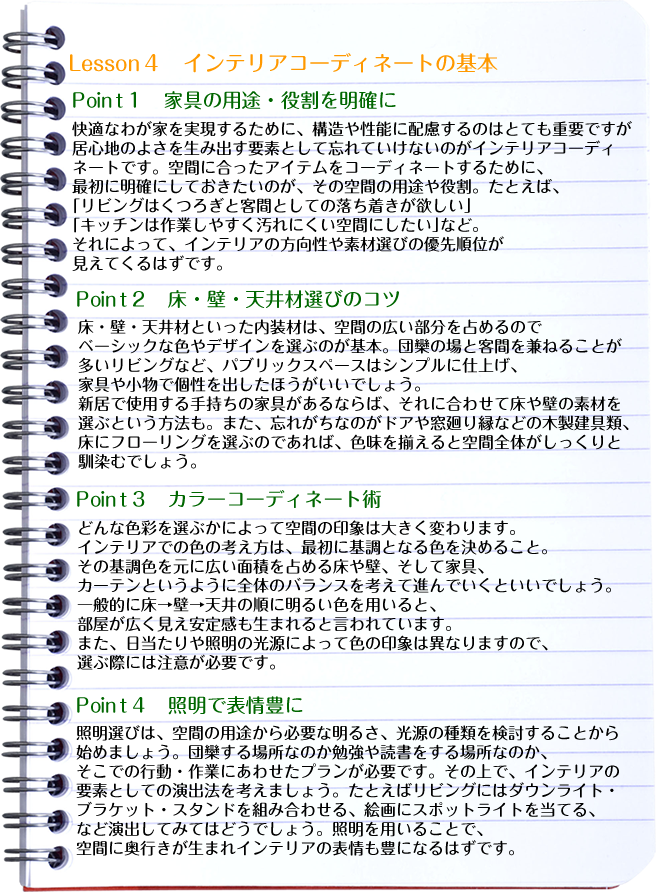 Lesson４　インテリアコーディネートの基本
Point１　家具の用途・役割を明確に
快適なわが家を実現するために、構造や性能に配慮するのはとても重要ですが
居心地のよさを生み出す要素として忘れていけないのがインテリアコーディ
ネートです。空間に合ったアイテムをコーディネートするために、
最初に明確にしておきたいのが、その空間の用途や役割。たとえば、
「リビングはくつろぎと客間としての落ち着きが欲しい」
「キッチンは作業しやすく汚れにくい空間にしたい」など。
それによって、インテリアの方向性や素材選びの優先順位が
見えてくるはずです。
Point２　床・壁・天井材選びのコツ
床・壁・天井材といった内装材は、空間の広い部分を占めるので
ベーシックな色やデザインを選ぶのが基本。団欒の場と客間を兼ねることが
多いリビングなど、パブリックスペースはシンプルに仕上げ、
家具や小物で個性を出したほうがいいでしょう。
新居で使用する手持ちの家具があるならば、それに合わせて床や壁の素材を
選ぶという方法も。また、忘れがちなのがドアや窓廻り縁などの木製建具類、
床にフローリングを選ぶのであれば、色味を揃えると空間全体がしっくりと
馴染むでしょう。
Point３　カラーコーディネート術
どんな色彩を選ぶかによって空間の印象は大きく変わります。
インテリアでの色の考え方は、最初に基調となる色を決めること。
その基調色を元に広い面積を占める床や壁、そして家具、
カーテンというように全体のバランスを考えて進んでいくといいでしょう。
一般的に床→壁→天井の順に明るい色を用いると、
部屋が広く見え安定感も生まれると言われています。
また、日当たりや照明の光源によって色の印象は異なりますので、
選ぶ際には注意が必要です。
Point４　照明で表情豊に
照明選びは、空間の用途から必要な明るさ、光源の種類を検討することから
始めましょう。団欒する場所なのか勉強や読書をする場所なのか、
そこでの行動・作業にあわせたプランが必要です。その上で、インテリアの
要素としての演出法を考えましょう。たとえばリビングにはダウンライト・
ブラケット・スタンドを組み合わせる、絵画にスポットライトを当てる、
など演出してみてはどうでしょう。照明を用いることで、
空間に奥行きが生まれインテリアの表情も豊になるはずです。